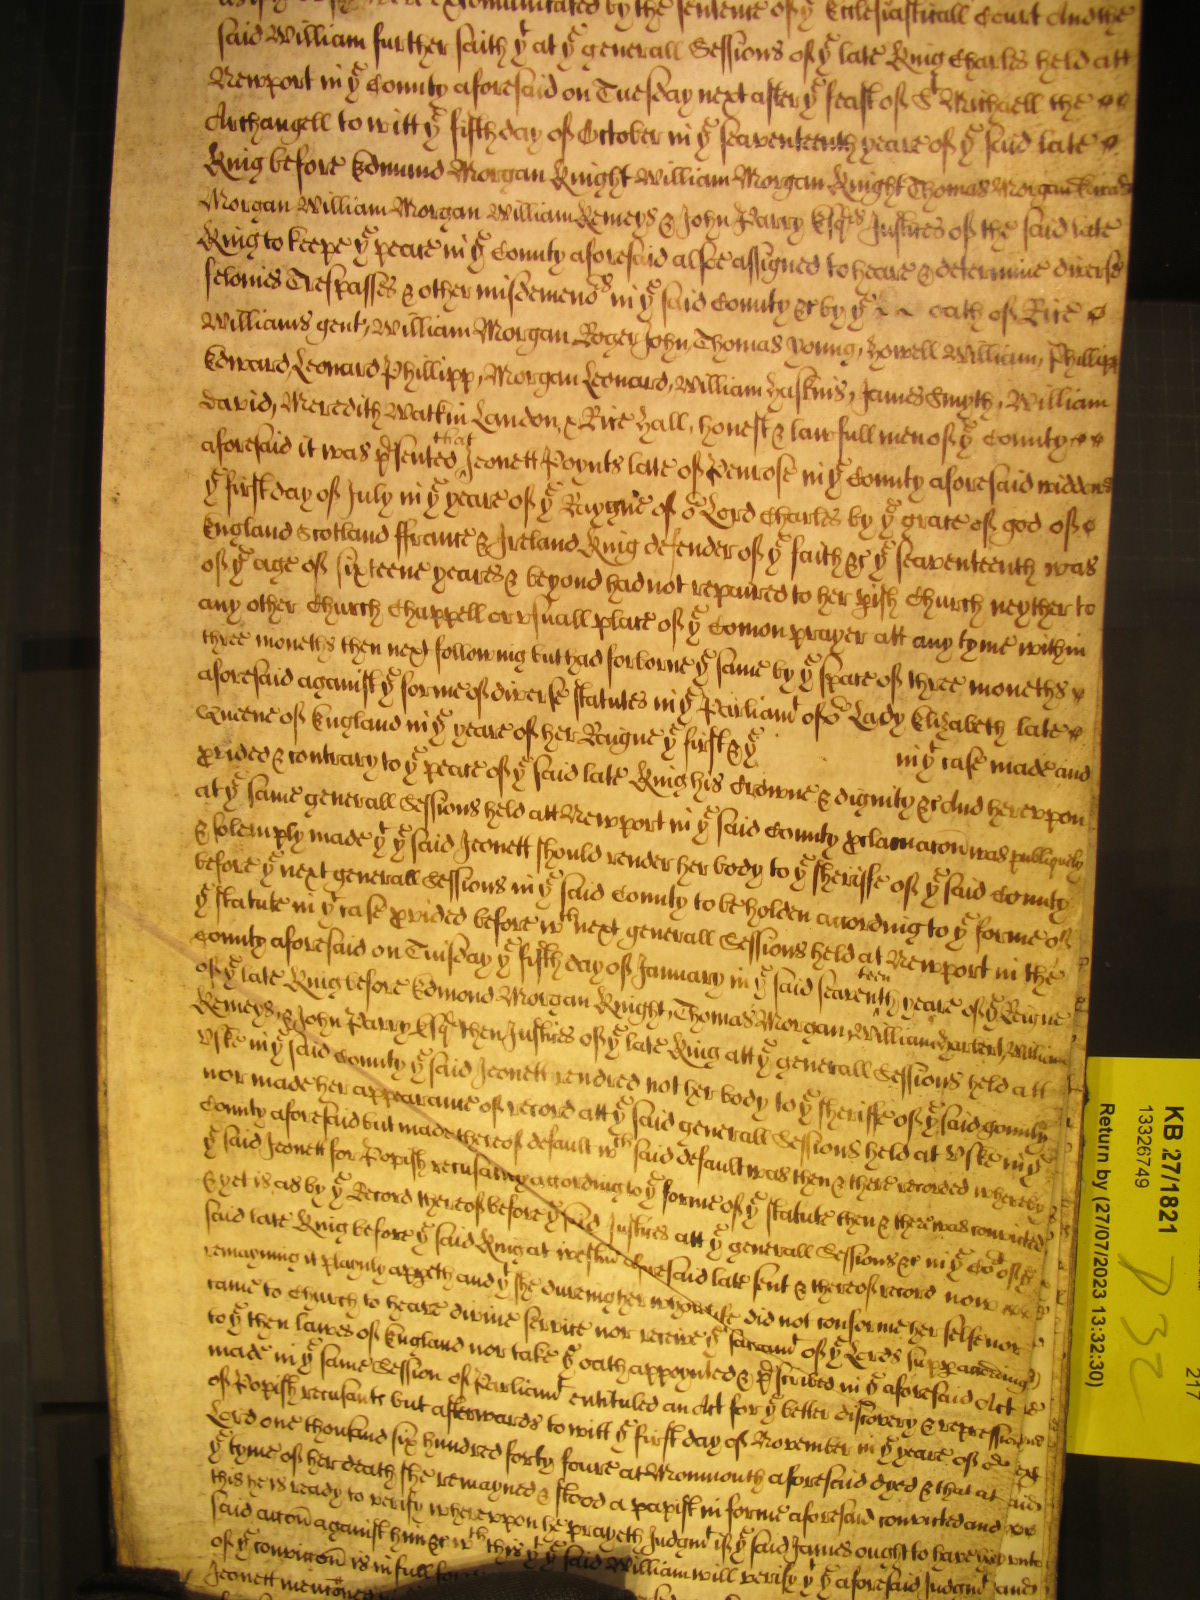 excommunicated by the sentence of yͤ Ecclesiasticall Court And the
said William further saith yͭ at yͤ generall Sessions of yͤ late King Charles held att
Newport in yͤ County aforesaid on Tuesday next after yͤ feast of Sͭ Michaell the
Archangell to witt yͤ fifth day of October in yͤ seaventeenth yeare of yͤ said late
King before Edmund Morgan Knight William Morgan Knight Thomas Morgan
Morgan William Morgan William Kemeys & John Parry Esqͬˢ Justices of the said late
King to keepe yͤ peace in yͤ County aforesaid alsoe assigned to heare & determine diverse
felonies Trespasses & other misdemenoͬˢ in yͤ said County &c by yͤ oath of Rice
Williams gent, William Morgan, Roger John, Thomas Young, Howell William, Phillipp
Edward, Leonard Phillipp, Morgan Leonard, William Haskins, James Smyth, William
David, Meredith Watkin Landon, & Rice Hall, honest & lawfull men of yͤ County
aforesaid it was pͬsented that Jeonett Poynts late of Penrose in yͤ County aforesaid widdowe
yͤ first day of July in yͤ yeare of yͤ Raygne of oͬ Lord Charles by yͤ grace of god of
England Scotland ffrance & Ireland King defender of yͤ faith &c yͤ seaventeenth was
of yͤ age of sixteene yeares & beyond had not repaired to her pish Church neyther to
any other Church Chappell or usuall place of yͤ Comon prayer att any tyme within
three moneths then next following but had forborne yͤ same by yͤ space of three moneths
aforesaid against yͤ forme of diverse statutes in yͤ Parliamͭ of oͬ Lady Elizabeth late
Queene of England in yͤ yeare of her Raigne yͤ first & yͤ in yͭ case made and
pvided & contrary to yͤ peace of yͤ said late King his Crowne & dignity &c And hereupon
at yͤ same generall Sessions held att Newport in yͤ said County pclamacōn was publiquely
& solemply made yͭ yͤ said Jeonett should render her body to yͤ sheriffe of yͤ said County
before yͤ next generall Sessions in yͤ said County to be holden according to yͤ forme of
yͤ statute in yͭ case pvided before wͨʰ next generall Sessions held at Newport in the
County aforesaid on Tuisday yͤ fifth day of January in yͤ said seaventeenth yeare of yͤ Reigne
of yͤ late King before Edmond Morgan Knight, Thomas Morgan, William Harbert, William
Kemeys, & John Parry Esqͬˢ then Justices of yͤ late King att yͤ generall Sessions held att
Uske in yͤ said County yͤ said Jeonett rendred not her body to yͤ sheriffe of yͤ said County
nor made her appearance of record att yͤ said generall Sessions held at Uske in yͤ
County aforesaid but made thereof default wͨʰ said default was then & there recorded whereby
yͤ said Jeonett for Popish recusancy acording to yͤ forme of yͤ statute then & there was convicted
& yet is as by yͤ Record thereof before yͤ said Justices att yͤ generall Sessions &c in yͤ
said late King before yͤ said King at Westmͬ aforesaid late sent & thereof record now
remayning it playnly appeth and yͭ she dureing her did not conforme her selfe nor
came to Church to heare divine service nor receive yͤ sacramͭ of yͤ Lords supp according
to yͤ then lawes of England nor take yͤ oath appoynted & pͬscribed in yͤ aforesaid Act
made in yͤ same Session of Parliamͭ entituled an Act for yͤ better discovery & repressing
of Popish recusants but afterwards to witt yͤ first day of November in yͤ yeare of oͬ
Lord one thousand six hundred forty foure at Monmouth aforesaid dyed & that at
yͤ tyme of her death she remayned & stood a papist in forme aforesaid convicted and
this he is ready to verify whereupon he prayeth Judgmͭ if yͤ said James ought to have
said accōn against him &c wͭʰ this yͭ yͤ said William will verify yͭ yͤ aforesaid Judgmͭ and
of yͤ conviccōn is in full
Jeonett mencōned
KB 27/1821
13326749
Return by (27/07/2023 13:32:30)
217